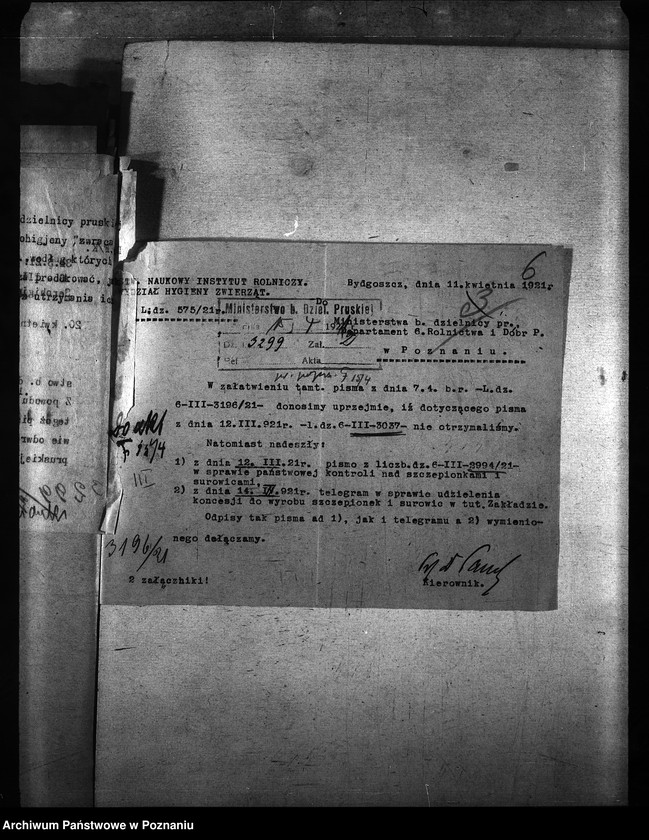 dzielnicy prusk
ohigjeny "zaraz
podł których
produkować,
utrzymania ic
20.
6
PAŃSTW. NAUKOWY INSTYTUT ROLNICZY.
DZIAŁ HYGIENY ZWIERZĄT.
Bydgoszcz, dnia 11.kwietnia 1921r
3
L:dz. 575/21r.
Do
Ministerstwo b. Dziel. Pruskiej
Ministerstwa b. dzielnicy pr.,
Departament 6.Rolnictwa i Dóbr P.
3299 Zał. 2
Ref. Akta
w Poznaniu.
15/4
W załatwieniu tamt. pisma z dnia 7.4. b.r. -L.dz.
6-III-3196/21- donosimy uprzejmie, iż dotyczącego pisma
z dnia 12.III.921r. -l.dz.6-III-3037- nie otrzymaliśmy.
do akt
15/4
III
Natomiast nadeszły:
1) z dnia 12. III.21r. pismo z liczb.dz.6-III-2994/21-
w sprawie państwowej kontroli nad szczepionkami i
surowicami,
2) z dnia 14. IV.921r. telegram w sprawie udzielenia
koncesji do wyrobu szczepionek i surowic w tut.Zakładzie.
Odpisy tak pisma ad 1), jak i telegramu a 2) wymienio-
nego dołączamy.
3196/21
2 załączniki!
Kierownik.
Archiwum Państwowe w Poznaniu